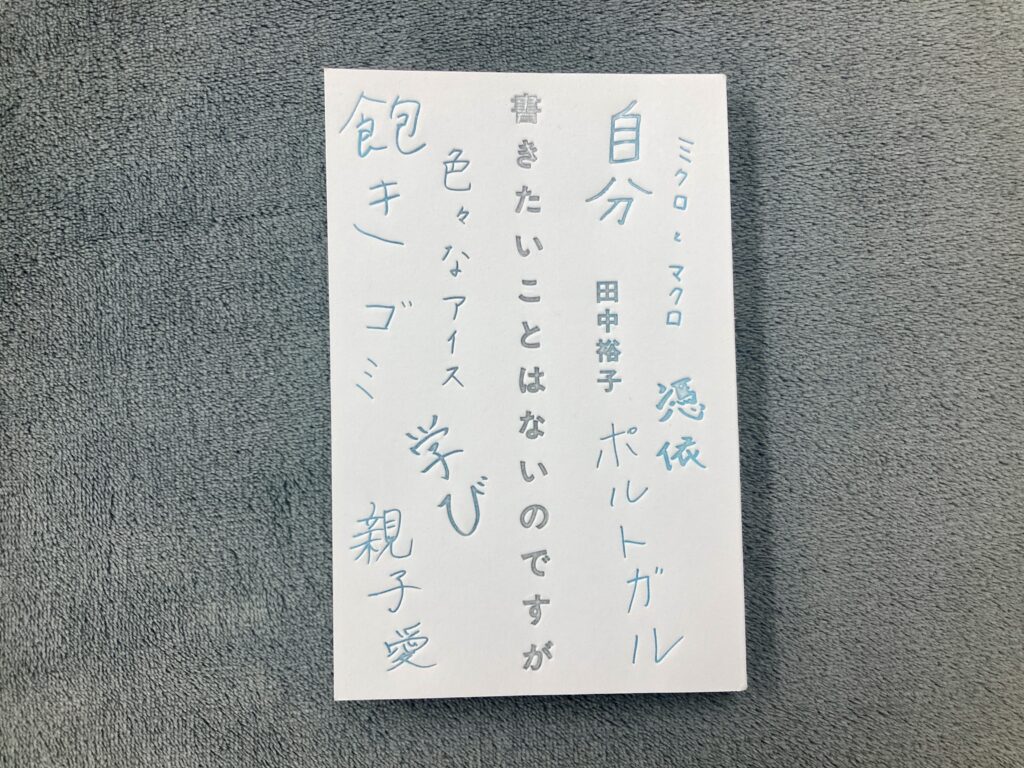 ミクロとマクロ
憑依
自分
田中裕子
ポルトガル
書きたいことはないのですが
色々なアイス
学び
飽き
ゴミ
親子愛